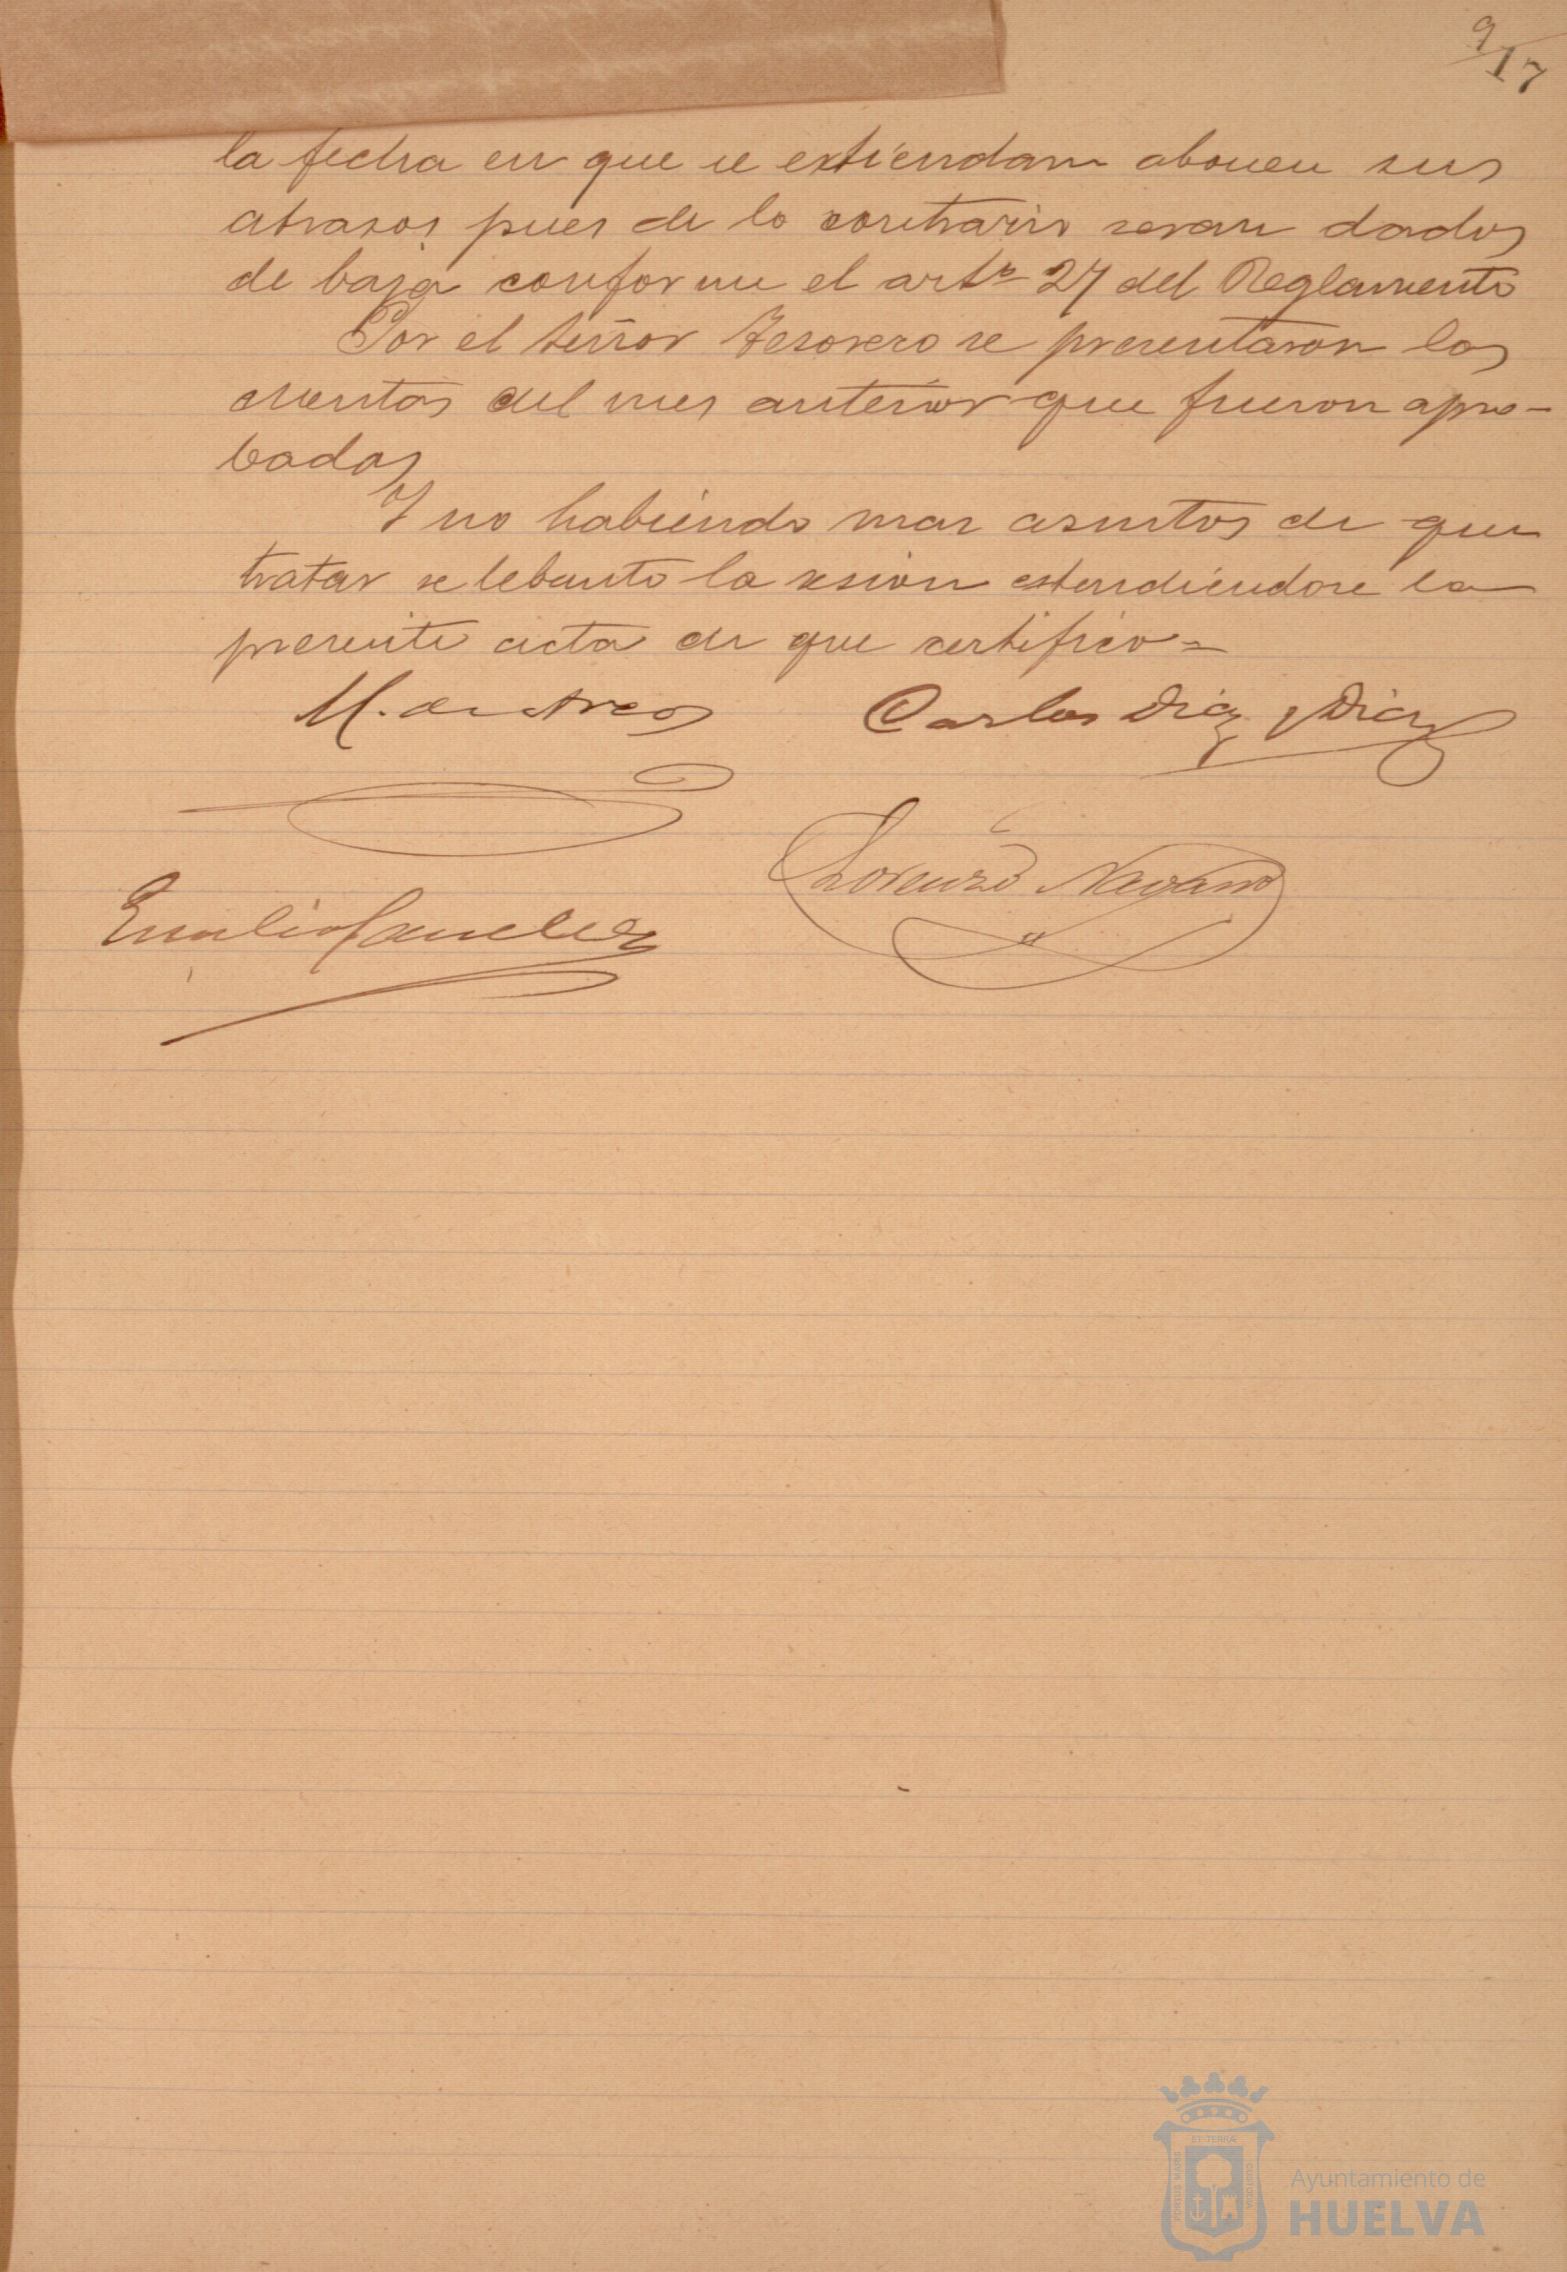 9
17
la fecha en que se extiendan abonen sus
atrasos pues de lo contrario seran dados
de baja conforme el artº 27 del Reglamento
Por el señor Tesorero se presentaron las
cuentas del mes anterior que fueron apro-
badas
Y no habiendo mas asuntos de que
tratar se lebanto la sesion estendiendose la
presente acta de que certifico=
M. de Arcos Carlos Díaz y Díaz
Lorenzo Navarro
Emilio Sanchez
ET TERRÆ
PORTUS MARIS
CUSTODIA
Ayuntamiento de
HUELVA